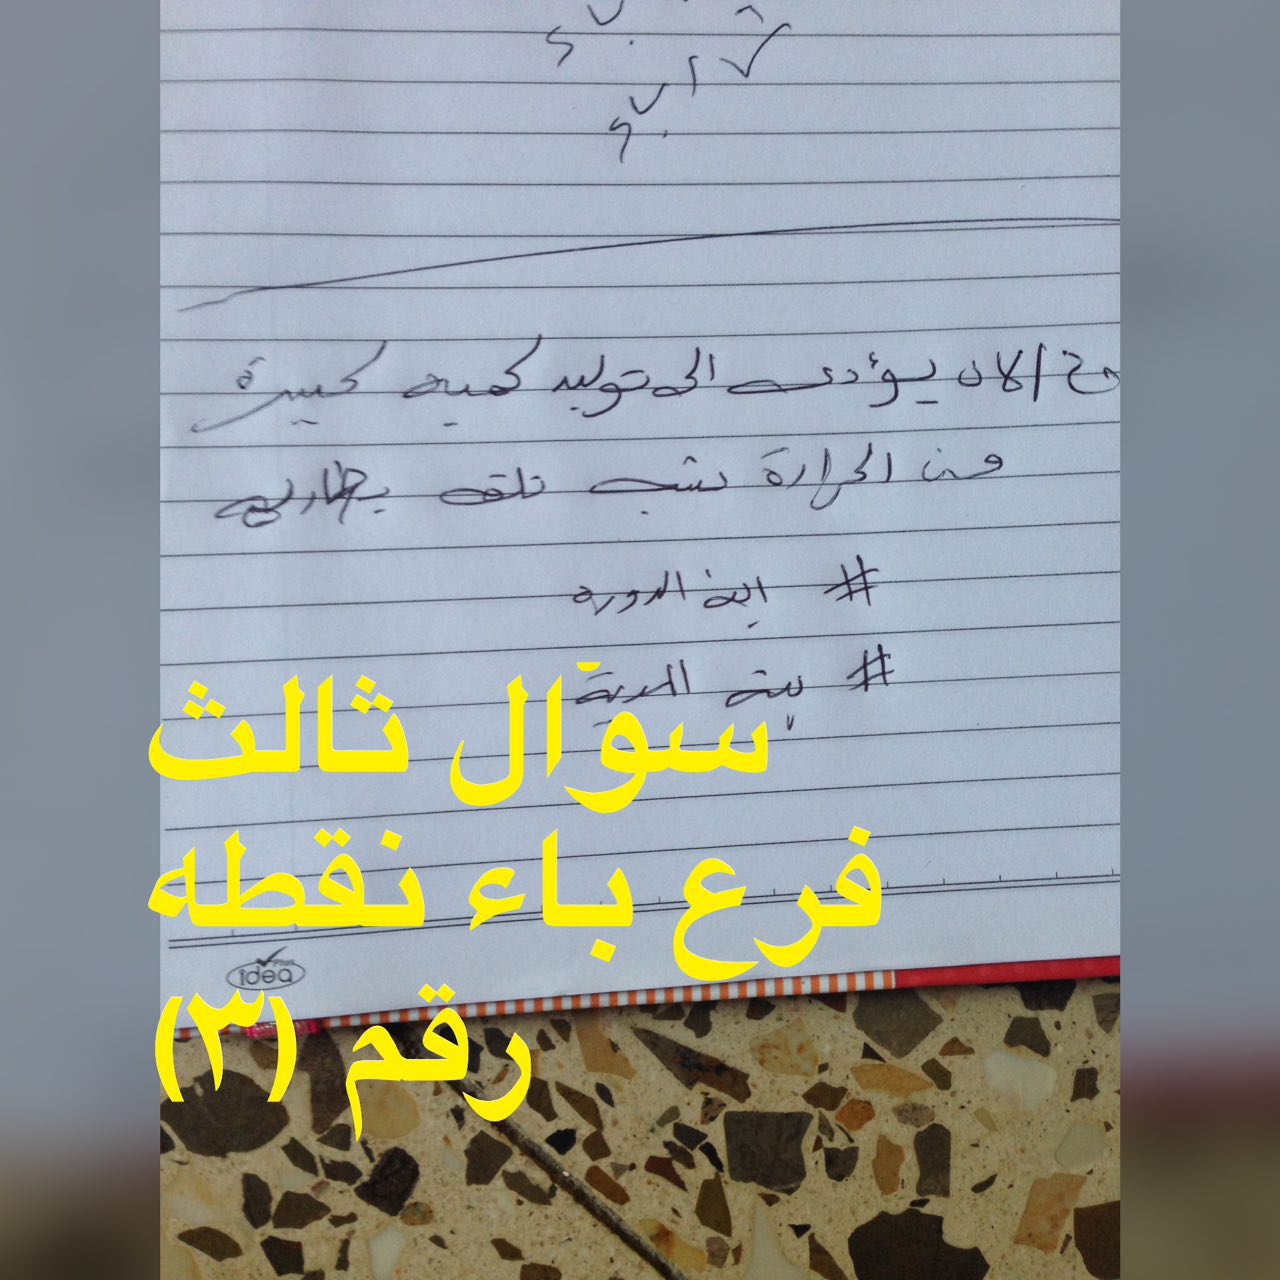 ج/ لان يؤدي الى توليد كميه كبيرة
من الحرارة تسبب تلف بطاريه
# ابن الدورة
#
سوٓال ثالث
فرع باء نقطه
رقم (٣)
idea